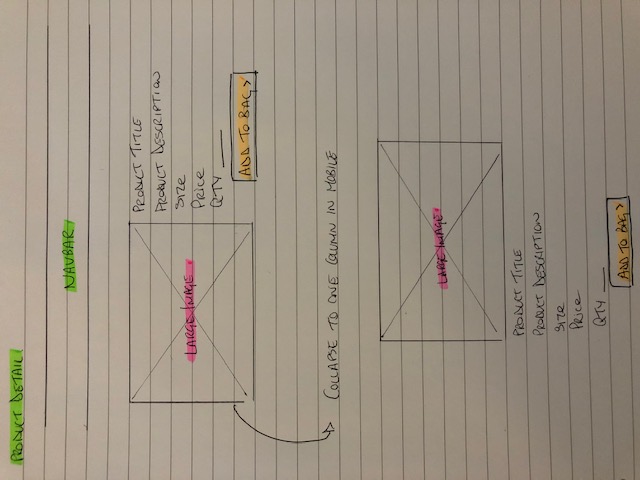 PRODUCT DETAIL
NAVBAR
LARGE IMAGE
PRODUCT TITLE
PRODUCT DESCRIPTION
SIZE
PRICE
QTY ____
ADD TO BAG >
COLLAPSE TO ONE COLUMN IN MOBILE
LARGE IMAGE
PRODUCT TITLE
PRODUCT DESCRIPTION
SIZE
PRICE
QTY ___
ADD TO BAG >